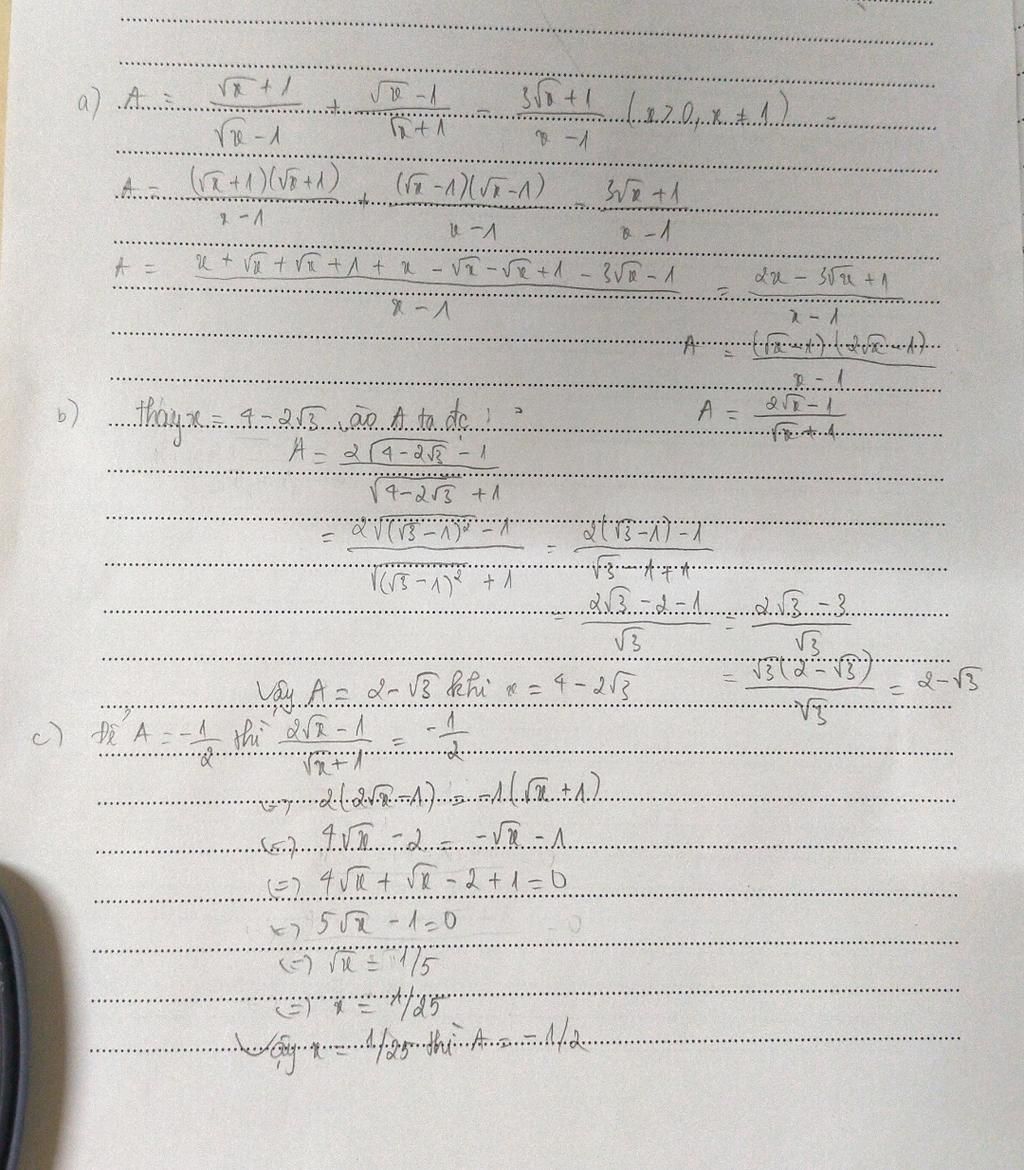 a) A = (√x + 1)/(√x - 1) + (√x - 1)/(√x + 1) - (3√x + 1)/(x - 1) (x > 0, x ≠ 1)
A = (√x + 1)(√x + 1)/(x - 1) + (√x - 1)(√x - 1)/(x - 1) - (3√x + 1)/(x - 1)
A = (x + √x + √x + 1 + x - √x - √x + 1 - 3√x - 1)/(x - 1) = (2x - 3√x + 1)/(x - 1)
A = (√x - 1)(2√x - 1)/(x - 1)
A = (2√x - 1)/(√x + 1)
b) thay x = 4 - 2√3 vào A ta đc :
A = (2√(4 - 2√3) - 1)/(√(4 - 2√3) + 1)
= (2√((√3 - 1)²) - 1)/(√((√3 - 1)²) + 1) = (2(√3 - 1) - 1)/(√3 - 1 + 1)
= (2√3 - 2 - 1)/√3 = (2√3 - 3)/√3
= √3(2 - √3)/√3 = 2 - √3
Vậy A = 2 - √3 khi x = 4 - 2√3
c) Để A = -1/2 thì (2√x - 1)/(√x + 1) = -1/2
<=> 2(2√x - 1) = -1(√x + 1)
<=> 4√x - 2 = -√x - 1
<=> 4√x + √x - 2 + 1 = 0
<=> 5√x - 1 = 0
<=> √x = 1/5
<=> x = 1/25
Vậy x = 1/25 thì A = -1/2